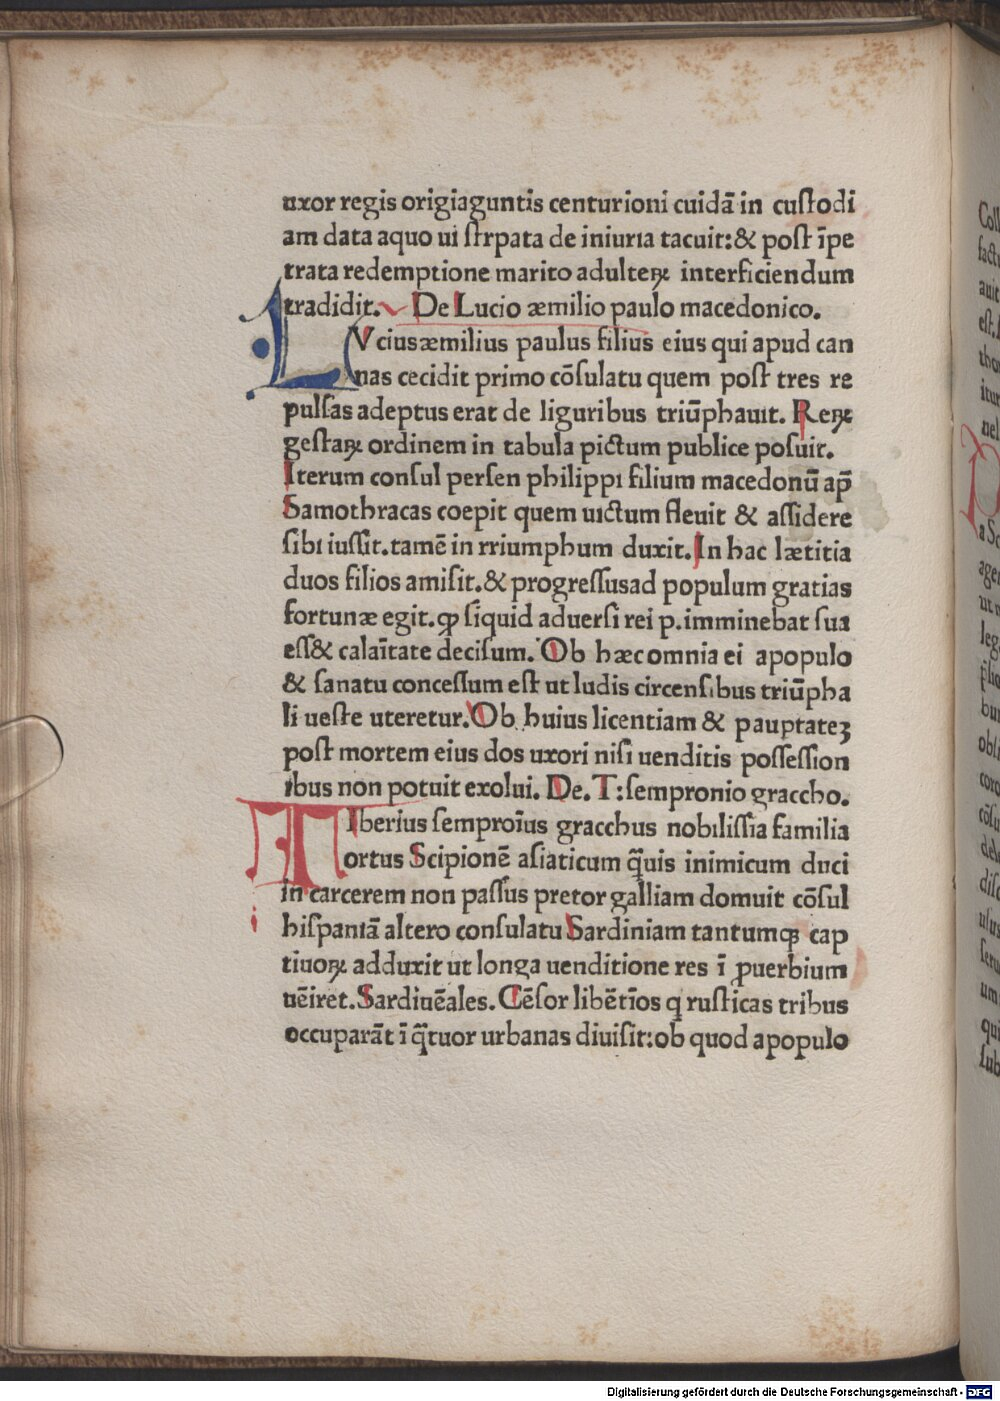 uxor regis origiaguntis centurioni cuidā in custodi
am data aquo ui strpata de iniuria tacuit:& post īpe
trata redemptione marito adulteꝝ interficiendum
tradidit. De Lucio æmilio paulo macedonico.
LVcius æmilius paulus filius eius qui apud can
nas cecidit primo cōsulatu quem post tres re
pulsas adeptus erat de liguribus triūphauit. Reꝝ
gestaꝝ ordinem in tabula pictum publice posuit.
Iterum consul persen philippi filium macedonū ap̄
Samothracas coepit quem uictum fleuit & assidere
sibi iussit.tamē in rriumphum duxit. In hac lætitia
duos filios amisit.& progressusad populum gratias
fortunæ egit.ꝙ siquid aduersi rei p.imminebat sua
ess& calaītate decisum. Ob hæcomnia ei apopulo
& sanatu concessum est ut ludis circensibus triūpha
li ueste uteretur. Ob huius licentiam & pauptateꝫ
post mortem eius dos uxori nisi uenditis possession
ibus non potuit exolui. De. T:sempronio graccho.
TIberius semproīus gracchus nobilissia familia
ortus Scipionē asiaticum q̄uis inimicum duci
in carcerem non passus pretor galliam domuit cōsul
hispaniā altero consulatu Sardiniam tantumqꝫ cap
tiuoꝝ adduxit ut longa uenditione res ī ꝓuerbium
uēiret. Sardiuēales. Cēsor libētīos q rusticas tribus
occuparāt ī q̄tuor urbanas diuisit:ob quod apopulo
Digitalisierung gefördert durch die Deutsche Forschungsgemeinschaft - DFG